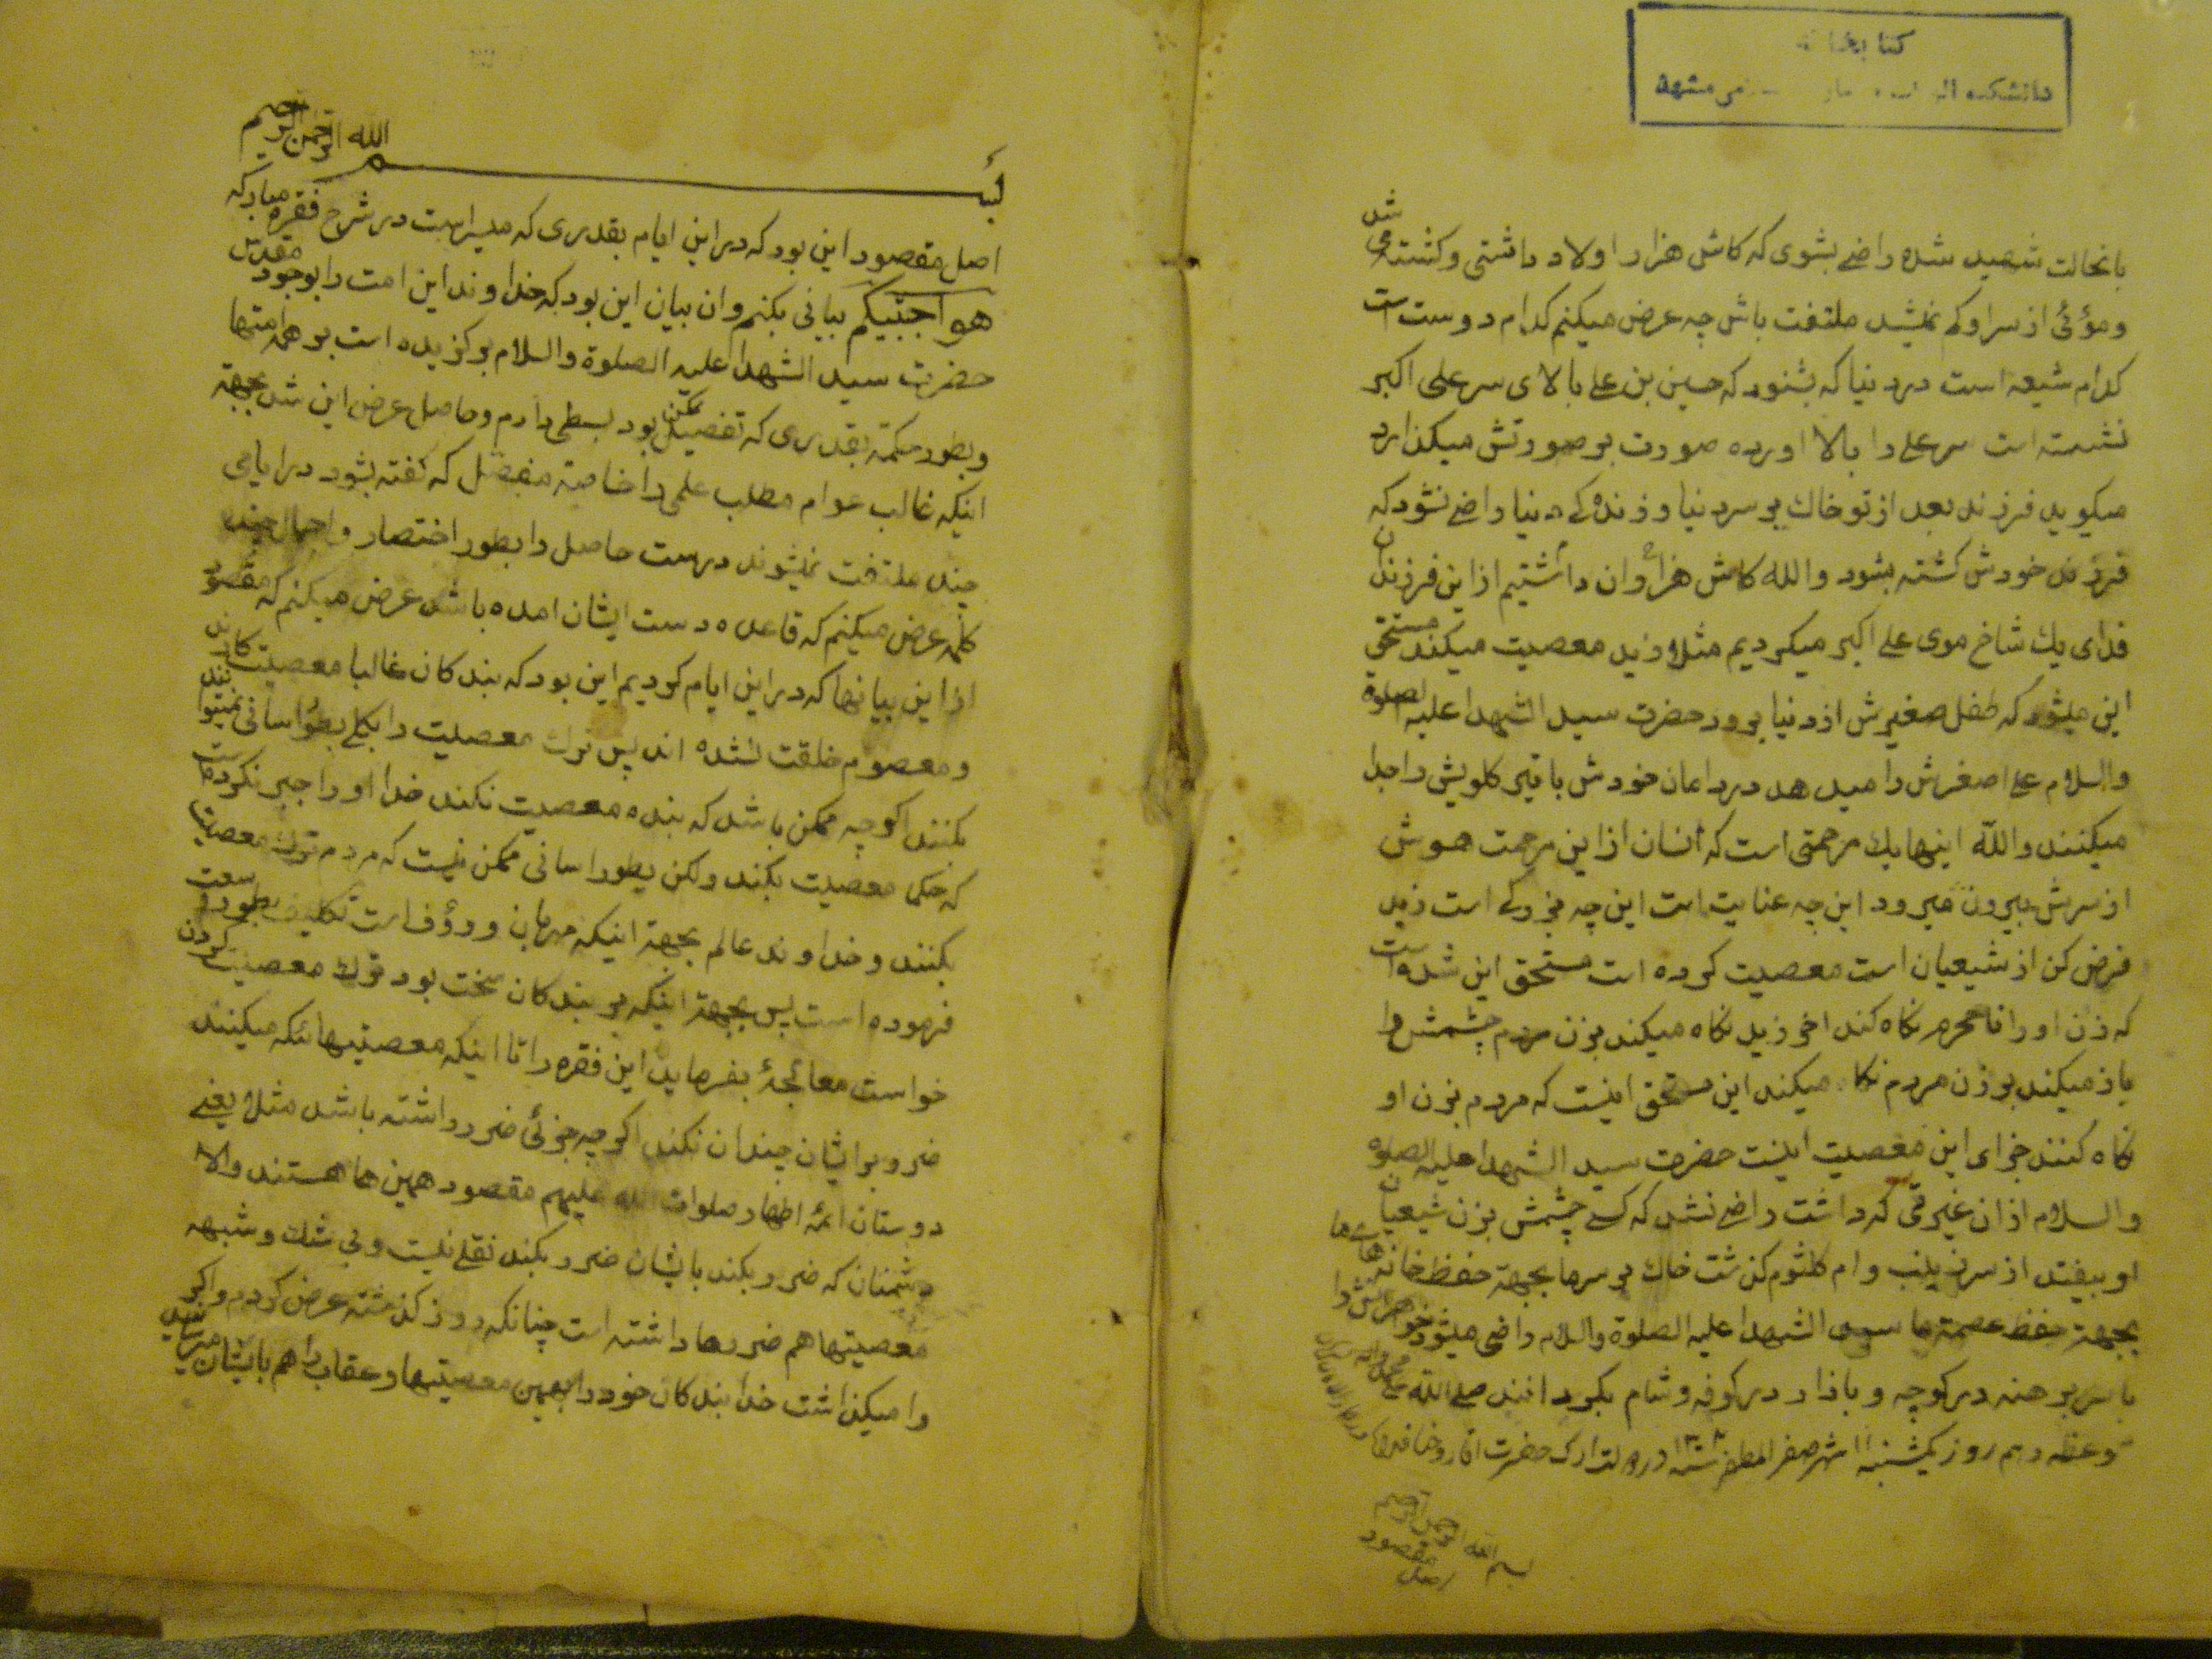 كتابخانه
دانشكده مشهد
بانحالت شهید شده راضی بشوی که کاش هزار اولاد داشتی و کشته می شد
و موئی از سر او کم نمیشد ملتفت باش چه عرض میکنم کدام دوست است
کدام شیعه است در دنیا که بشنود که حسین بن علی بالای سر علی اکبر
نشسته است سر علی را بالا اورده صورت بر صورتش میکذارد
میکوید فرزند بعد از تو خاك بر سر دنیا و زندکی دنیا راضی نشود که
فرزندان خودش کشته بشود والله کاش هزاران داشتیم از این فرزندان
فدای یك شاخ موی علی اکبر میکردیم مثلا زید معصیت میکند مستحق
این میشود که طفل صغیرش از دنیا برود حضرت سید الشهدا علیه الصلوة
والسلام علی اصغرش را میدهد در دامان خودش با تیر کلویش را جدا
میکنند والله اینها یك مرحمتی است که انسان از این مرحمت هوش
از سرش بیرون میرود این چه عنایت است این چه بزرکی است زید
فرض کن از شیعیان است معصیت کرده است مستحق این شده است
که زن او را نامحرم نکاه کند اخر زید نکاه میکند بزن مردم چشمش را
باز میکند بر زن مردم نکاه میکند این مستحق اینست که مردم بزن او
نکاه کنند جزای این معصیت اینست حضرت سید الشهدا علیه الصلوة
والسلام از ان غیرتی که داشت راضی نشد که کسی چشمش بزن شیعیان
او بیفتد از سر زینب و ام کلثوم کذشت خاك بر سرها بجهة حفظ خانه های ما
بجهة حفظ عصمت ما سید الشهدا علیه الصلوة والسلام راضی میشود خواهرانش را
با سر برهنه در کوچه و بازار در کوفه و شام بکردانند صلی الله علی
وعظ دهم روز یکشنبه ۱۱ شهر صفر المظفر در حضرت اقا روحنا فداه
بسم الله الرحمن الرحیم
اصل مقصود
بسم الله الرحمن الرحیم
اصل مقصود این بود که در این ایام بقدری که میسر است در شرح فقره مبارکه
هو اجتبیکم بیانی بکنم و ان بیان این بود که خداوند این امت را بوجود مقدس
حضرت سید الشهدا علیه الصلوة والسلام برکزیده است بر همه امتها
و بطور حکمة بقدری که تفصیل ممکن بود بسطی دادم و حاصل عرض این شد بجهة
اینکه غالب عوام مطلب علمی را خاصة مفصل که کفته بشود در ایامی
چند ملتفت نمیشوند درست حاصل را بطور اختصار و اجمال چند
کلمه عرض میکنم که قاعده دست ایشان امده باشد عرض میکنم که مقصود
از این بیانها که در این ایام کردیم این بود که بندکان غالبا معصیت کارند
و معصوم خلقت نشده اند پس ترك معصیت را بکلی بطور اسانی نمیتوانند
بکنند اکر چه ممکن باشد که بنده معصیت نکند خدا او را جبر نکرده است
که حکما معصیت بکند ولکن بطور اسانی ممکن نیست که مردم ترك معصیت
بکنند و خداوند عالم بجهة اینکه مهربان و رؤف است تکلیف بطور وسعت
فرموده است پس بجهة اینکه بر بندکان سخت بود ترك معصیت کردن
خواست معالجهٔ بفرماید این فقره را تا اینکه معصیتهائیکه میکنند
ضرر بر ایشان چندان نکند اکر چه جزئی ضرر داشته باشد مثلا یعنی
دوستان ائمه اطهار صلوات الله علیهم مقصود همین ها هستند والا
دشمنان که ضرر بکند بایشان ضرر بکند نقلی نیست و بی شك و شبهه
معصیتها هم ضررها داشته است چنانکه روز کذشته عرض کردم و اکر
وا میکذاشت خدا بندکان خود را بهمین معصیتها و عقاب را هم بایشان میرسانید